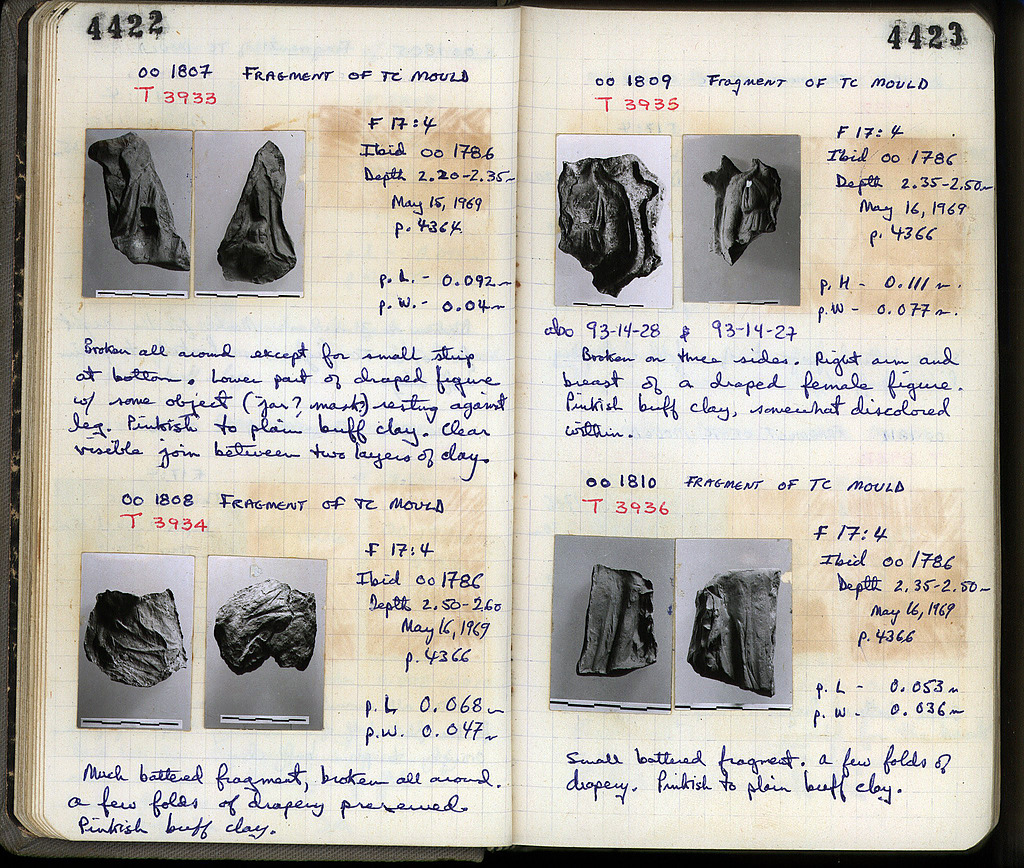 4422
OO 1807 FRAGMENT OF TC MOULD
T 3933
F 17:4
Ibid OO 1786
Depth 2.20-2.35m
May 15, 1969
p. 4364
p. L. - 0.092m
p. W. - 0.04m
Broken all around except for small strip
at bottom. Lower part of draped figure
w/ some object (jar? mask?) resting against
leg. Pinkish to plain buff clay. Clear
visible join between two layers of clay.
OO 1808 FRAGMENT OF TC MOULD
T 3934
F 17:4
Ibid OO 1786
Depth 2.50-2.60
May 16, 1969
p. 4366
p. L 0.068m
p. W. 0.047m
Much battered fragment, broken all around.
a few folds of drapery preserved.
Pinkish buff clay.
4423
OO 1809 Fragment OF TC MOULD
T 3935
F 17:4
Ibid OO 1786
Depth 2.35-2.50m
May 16, 1969
p. 4366
p. H - 0.111 m.
p. W - 0.077 m.
also 93-14-28 & 93-14-27
Broken on three sides. Right arm and
breast of a draped female figure.
Pinkish buff clay, somewhat discolored
within.
OO 1810 FRAGMENT OF TC MOULD
T 3936
F 17:4
Ibid OO 1786
Depth 2.35-2.50m
May 16, 1969
p. 4366
p. L - 0.053m
p. W. - 0.036m
Small battered fragment. a few folds of
drapery. Pinkish to plain buff clay.